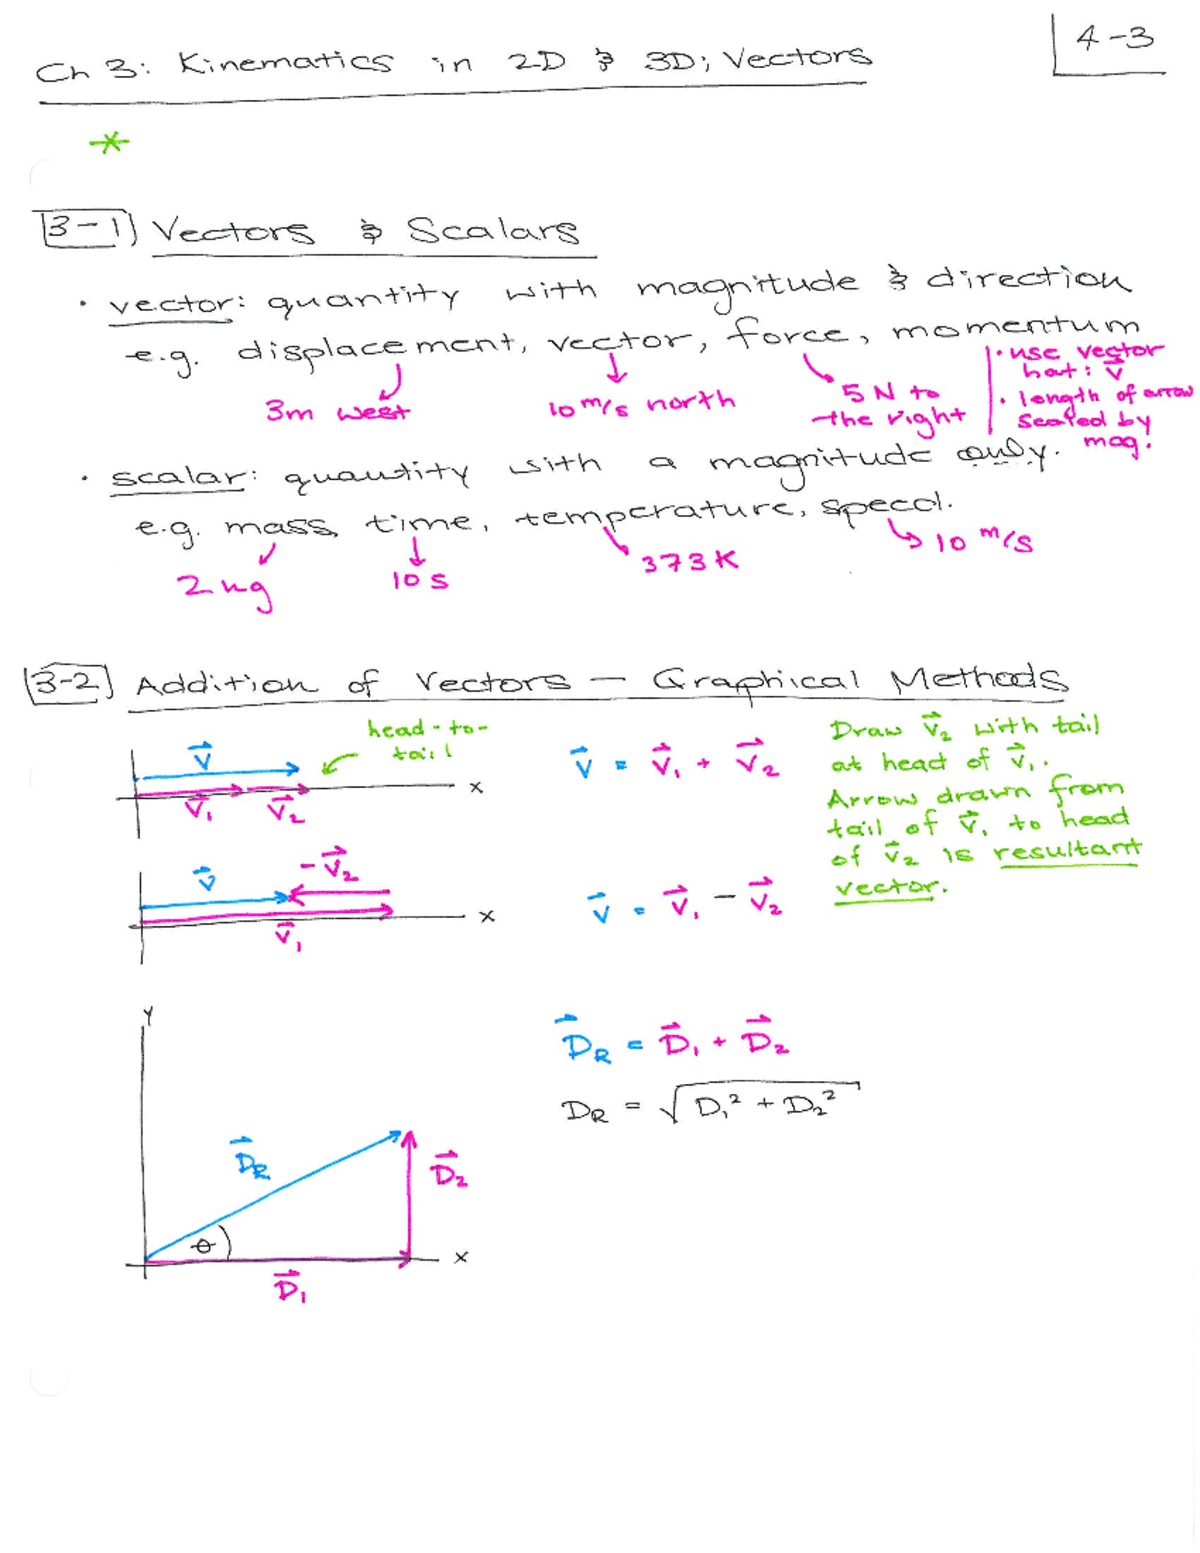 4-3
Ch 3: Kinematics in 2D & 3D; Vectors
*
3-1) Vectors & Scalars
· vector: quantity with magnitude & direction
e.g. displacement, vector, force, momentum
3m west
10 m/s north
5 N to
the right
· use vector
hat: v⃗
· length of arrow
scaled by
mag.
· scalar: quantity with a magnitude only.
e.g. mass, time, temperature, speed.
2 kg
10 s
373 K
10 m/s
3-2) Addition of Vectors – Graphical Methods
head-to-
tail
V⃗
V⃗₁ V⃗₂
x
V⃗ = V⃗₁ + V⃗₂
Draw V⃗₂ with tail
at head of V⃗₁.
Arrow drawn from
tail of V⃗₁ to head
of V⃗₂ is resultant
vector.
-V⃗₂
V⃗
V⃗₁
x
V⃗ = V⃗₁ – V⃗₂
Y
D⃗R = D⃗₁ + D⃗₂
DR = √D₁² + D₂²
D⃗R
D⃗₂
θ
x
D⃗₁